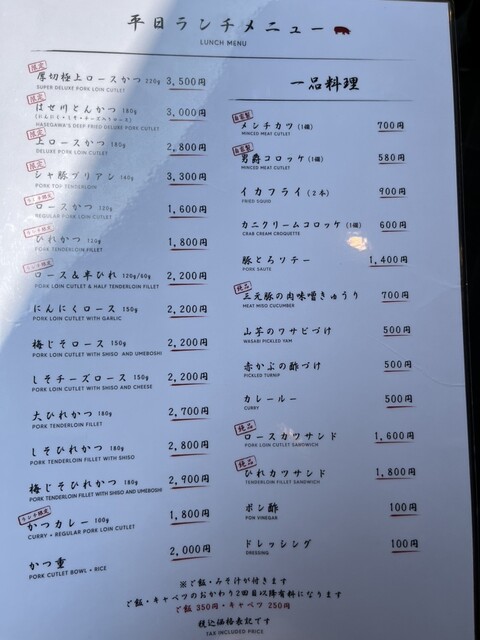 平日ランチメニュー
LUNCH MENU
限定
厚切極上ロースかつ 220g 3,500円
SUPER DELUXE PORK LOIN CUTLET
限定
はせ川とんかつ 180g 3,000円
HASEGAWA'S DEEP FRIED DELUXE PORK CUTLET
限定
上ロースかつ 180g 2,800円
DELUXE PORK LOIN CUTLET
限定
シャ豚ブリアン 180g 3,300円
PORK TOP TENDERLOIN
ランチ限定
ロースかつ 120g 1,600円
REGULAR PORK LOIN CUTLET
ランチ限定
ひれかつ 120g 1,800円
PORK TENDERLOIN FILLET
ランチ限定
ロース&半ひれ 120g/60g 2,200円
PORK LOIN CUTLET & HALF TENDERLOIN FILLET
にんにくロース 150g 2,200円
PORK LOIN CUTLET WITH GARLIC
梅じそロース 150g 2,200円
PORK LOIN CUTLET WITH SHISO AND UMEBOSHI
しそチーズロース 150g 2,200円
PORK LOIN CUTLET WITH SHISO AND CHEESE
大ひれかつ 180g 2,700円
PORK TENDERLOIN FILLET
しそひれかつ 180g 2,800円
PORK TENDERLOIN FILLET WITH SHISO
梅じそひれかつ 180g 2,900円
PORK TENDERLOIN FILLET WITH SHISO AND UMEBOSHI
ランチ限定
かつカレー 100g 1,800円
CURRY + REGULAR PORK LOIN CUTLET
かつ重 2,000円
PORK CUTLET BOWL + RICE
一品料理
自家製
メンチカツ (1個) 700円
MINCED MEAT CUTLET
自家製
男爵コロッケ (1個) 580円
MINCED MEAT CUTLET
イカフライ (2本) 900円
FRIED SQUID
カニクリームコロッケ (1個) 600円
CRAB CREAM CROQUETTE
豚とろソテー 1,400円
PORK SAUTE
純品
三元豚の肉味噌きゅうり 700円
MEAT MISO CUCUMBER
山芋のワサビづけ 500円
WASABI PICKLED YAM
赤かぶの酢づけ 500円
PICKLED TURNIP
カレールー 500円
CURRY
純品
ロースカツサンド 1,600円
PORK LOIN CUTLET SANDWICH
純品
ひれカツサンド 1,800円
TENDERLOIN FILLET SANDWICH
ポン酢 100円
PON VINEGAR
ドレッシング 100円
DRESSING
※ご飯・みそ汁が付きます
ご飯・キャベツのおかわり2回目以降有料になります
ご飯 350円・キャベツ 250円
税込価格表記です
TAX INCLUDED PRICE